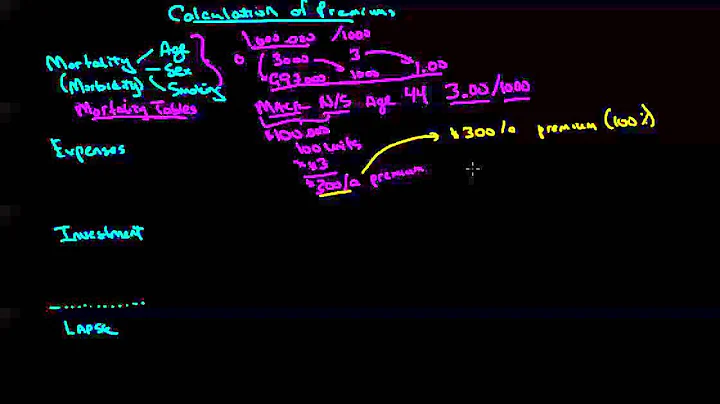 Calculation of Premiums
Mortality
(Morbidity)
Age
Sex
Smoking
Mortality Tables
1,000,000 /1000
3000 3
1000 1.00
Male N/S Age 44 3.00/1000
$100,000
100 units
x $3
$300/a premium
$300/a premium (100%)
Expenses
Investment
Lapse